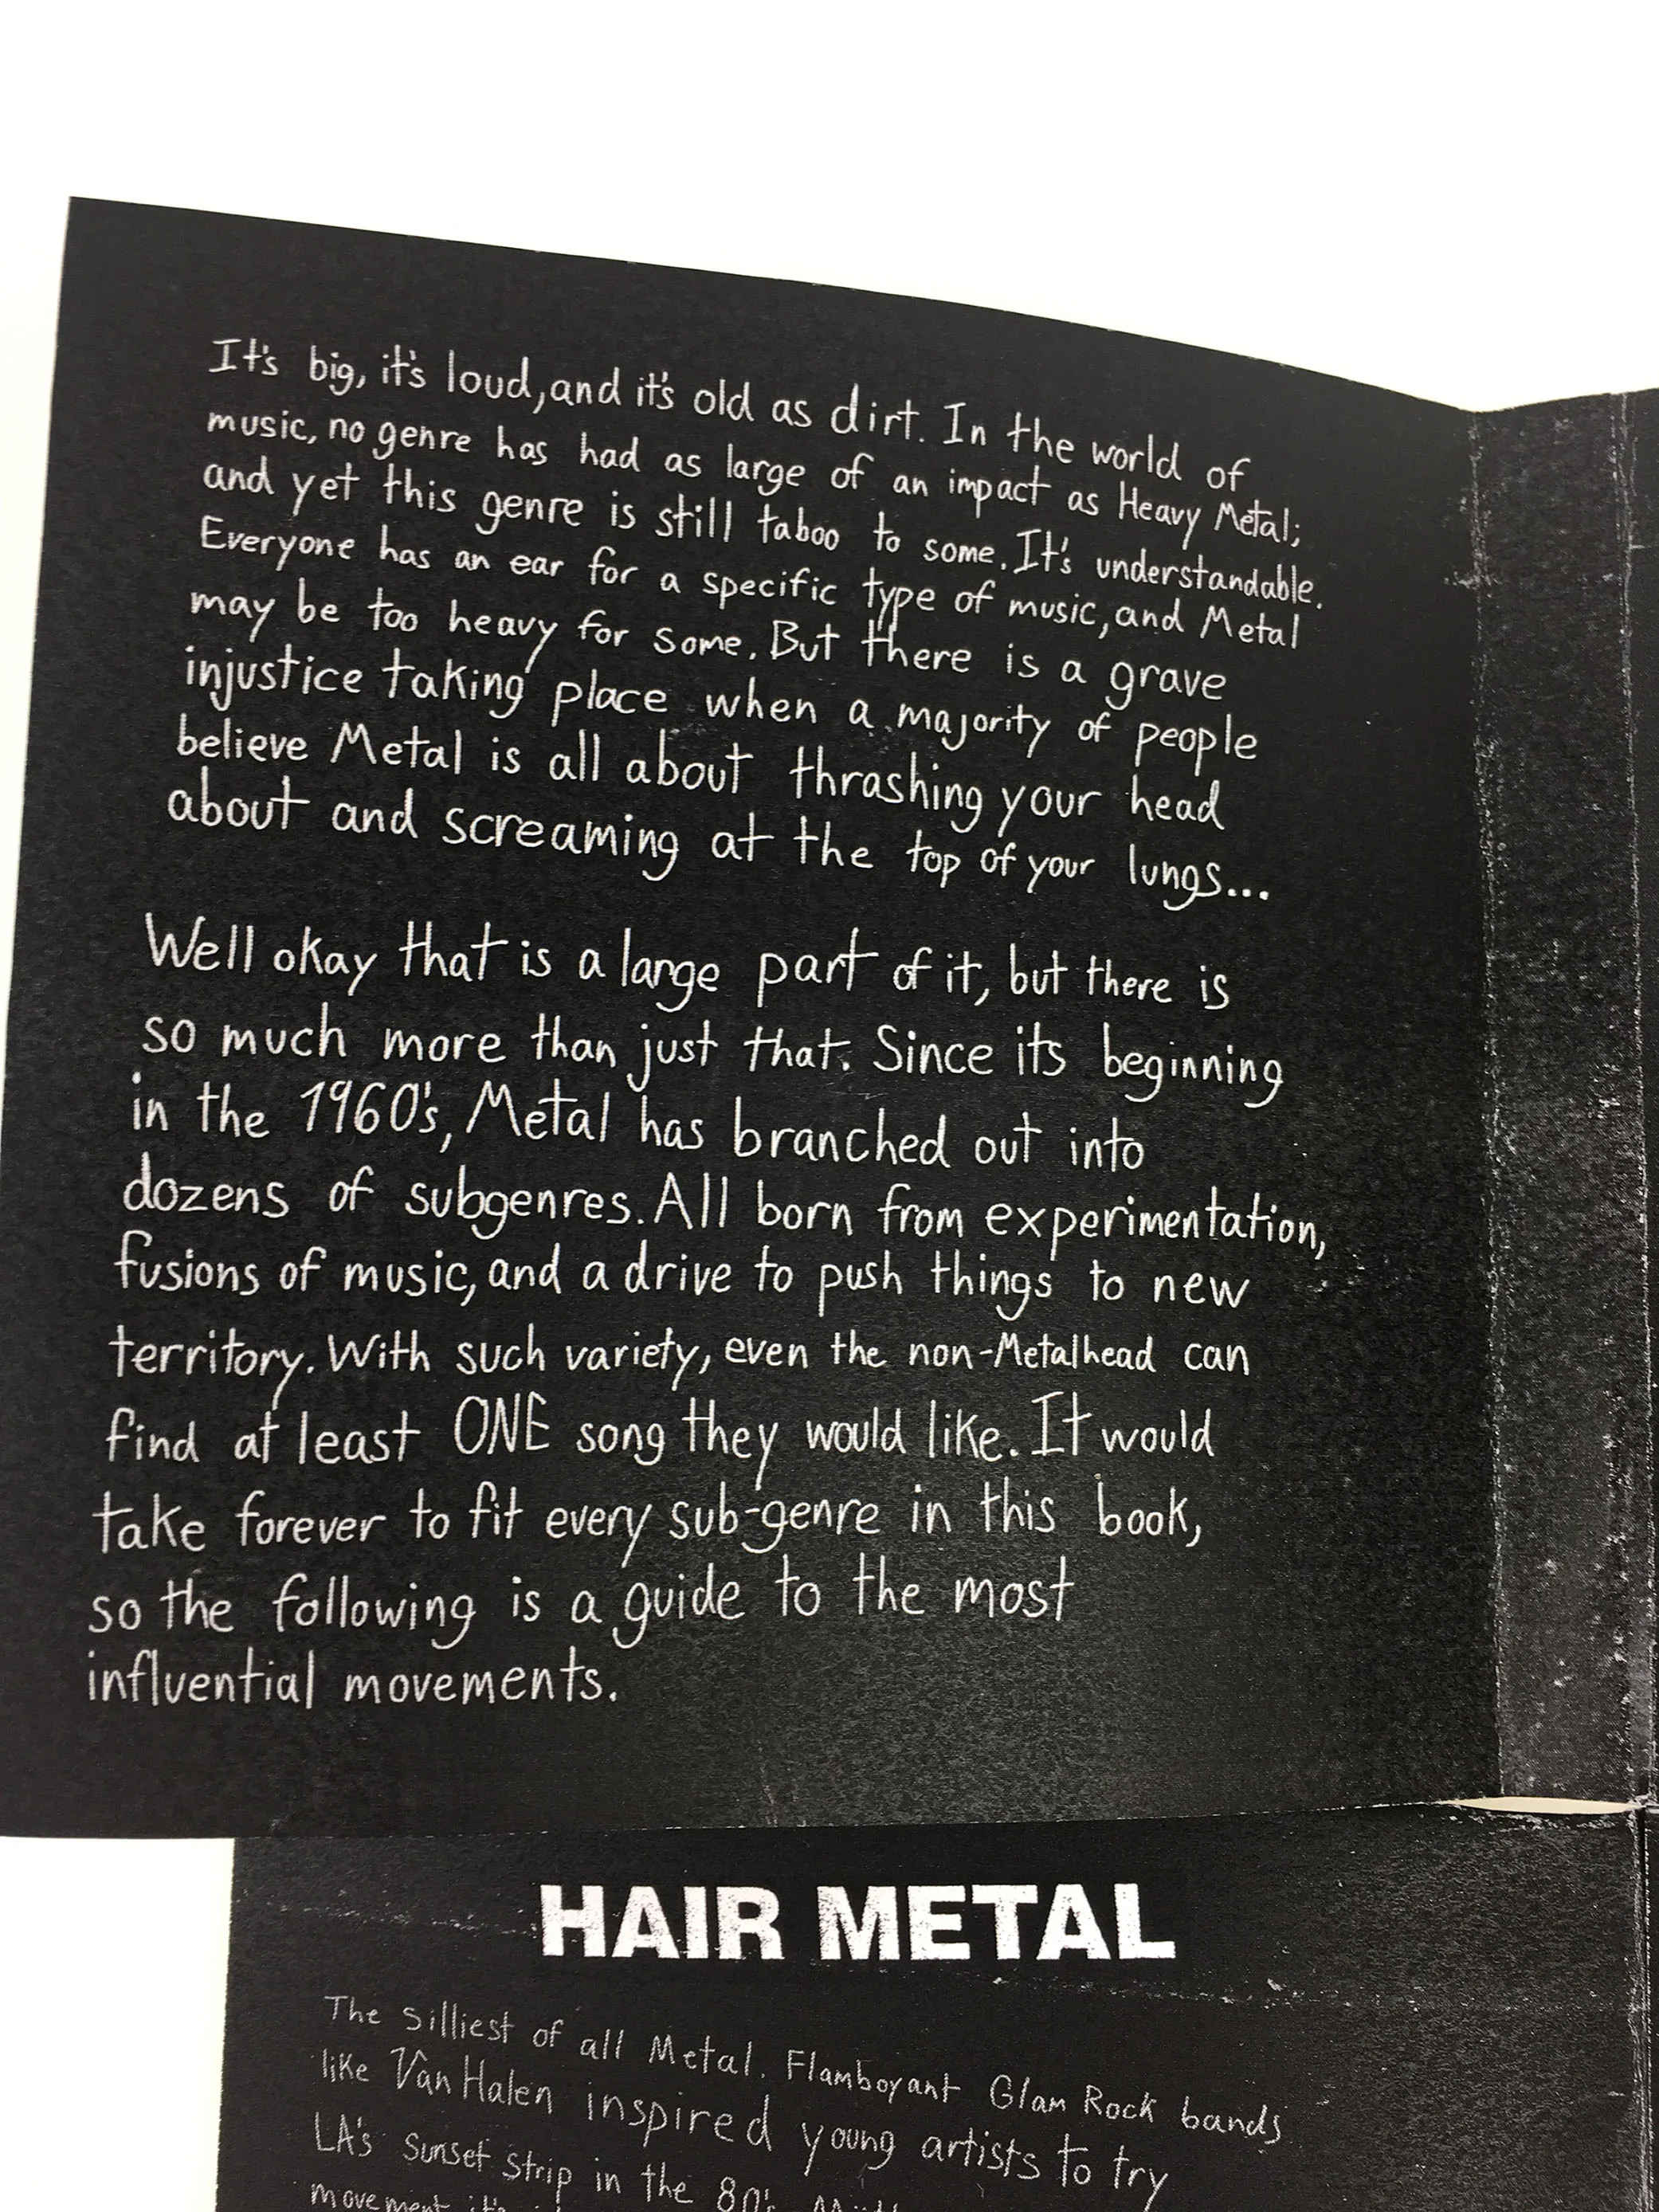 It's big, it's loud, and it's old as dirt. In the world of
music, no genre has had as large of an impact as Heavy Metal;
and yet this genre is still taboo to some. It's understandable.
Everyone has an ear for a specific type of music, and Metal
may be too heavy for some. But there is a grave
injustice taking place when a majority of people
believe Metal is all about thrashing your head
about and screaming at the top of your lungs...
Well okay that is a large part of it, but there is
so much more than just that. Since its beginning
in the 1960's, Metal has branched out into
dozens of subgenres. All born from experimentation,
fusions of music, and a drive to push things to new
territory. With such variety, even the non-Metalhead can
find at least ONE song they would like. It would
take forever to fit every sub-genre in this book,
so the following is a guide to the most
influential movements.
HAIR METAL
The Silliest of all Metal. Flamboyant Glam Rock bands
like Van Halen inspired young artists to try
LA's Sunset Strip in the 80's.
movement it's